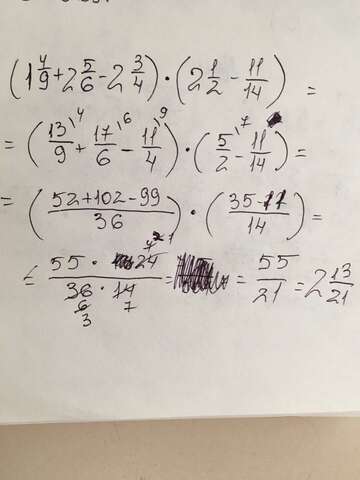 (1 4/9 + 2 5/6 - 2 3/4) · (2 1/2 - 11/14) =
= (13/9 \4 + 17/6 \6 - 11/4 \9) · (5/2 \7 - 11/14) =
= ((52+102-99)/36) · ((35-11)/14) =
= (55 · 24)/(36 · 14) = = 55/21 = 2 13/21
4 2 1
6 7
3